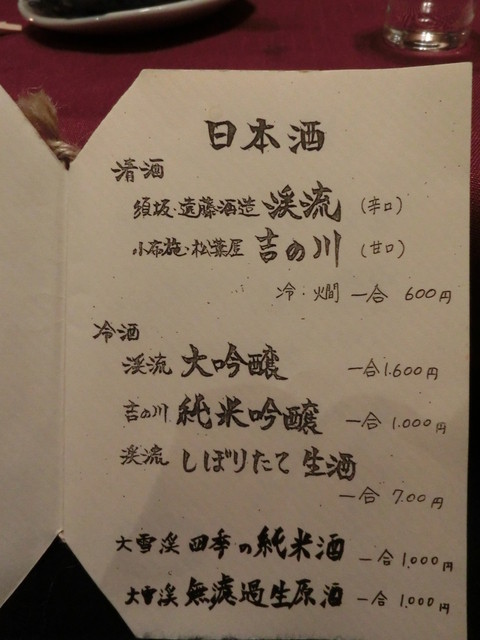 日本酒
清酒
須坂・遠藤酒造 渓流 (辛口)
小布施・松葉屋 吉の川 (甘口)
冷・燗 一合 600円
冷酒
渓流 大吟醸 一合 1.600円
吉の川 純米吟醸 一合 1.000円
渓流 しぼりたて 生酒
一合 700円
大雪渓 四季の純米酒 一合 1,000円
大雪渓 無濾過生原酒 一合 1,000円